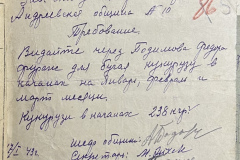 Андреевской общины № 10
86
Требование.
Выдайте через Подимова Федора
фураж для бугая кукурузу в
качанах на январь, февраль и
март месяцы.
Кукурузы в качанах 238 кгр.
Шеф общины
7/I 43г. Секретарь: